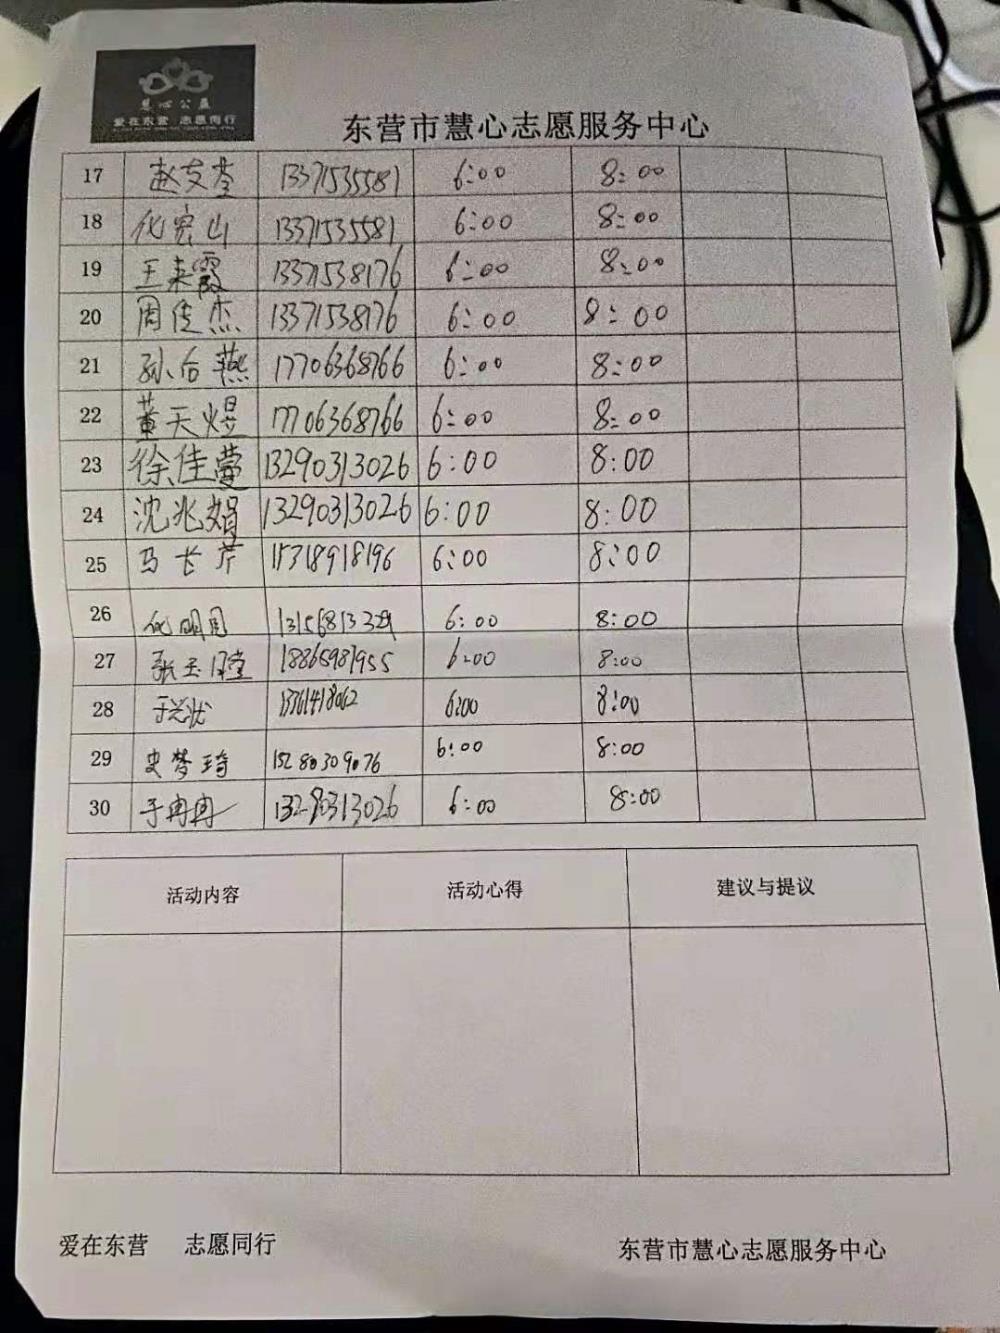 慧心公益
爱在东营 志愿同行
东营市慧心志愿服务中心
17 赵支莹 13371535581 6:00 8:00
18 化宪山 13371535581 6:00 8:00
19 王来霞 13371538176 6:00 8:00
20 周传杰 13371538176 6:00 8:00
21 孙后燕 17706368766 6:00 8:00
22 董天煜 17706368766 6:00 8:00
23 徐佳蔓 13290313026 6:00 8:00
24 沈兆娟 13290313026 6:00 8:00
25 马长芹 15318918196 6:00 8:00
26 13156813329 6:00 8:00
27 张玉 18865981955 6:00 8:00
28 13761418062 6:00 8:00
29 史梦琦 15280309076 6:00 8:00
30 于冉冉 13290313026 6:00 8:00
活动内容 活动心得 建议与提议
爱在东营 志愿同行 东营市慧心志愿服务中心